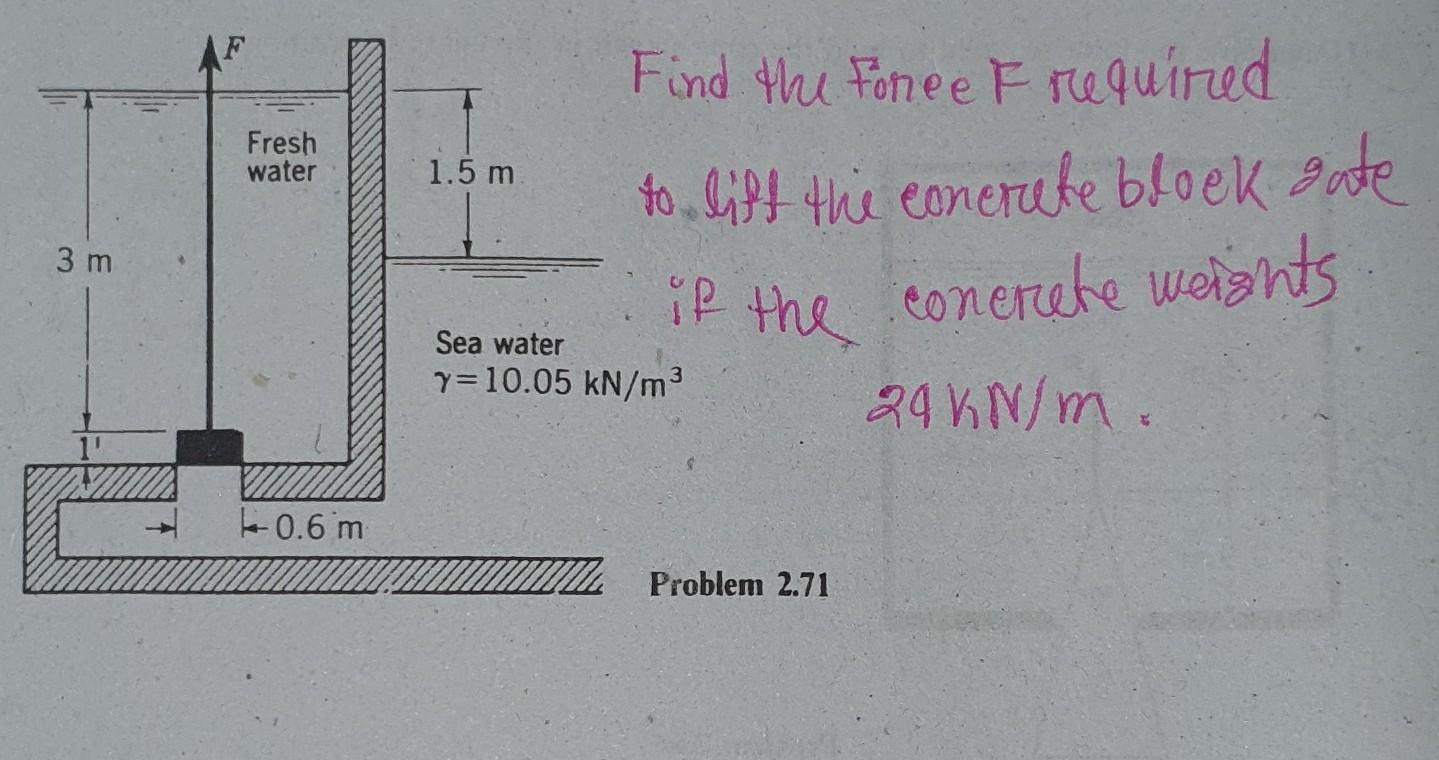 F
Fresh
water
1.5 m
3 m
Sea water
γ=10.05 kN/m³
1'
0.6 m
Problem 2.71
Find the Force F required
to lift the concrete block gate
if the concrete weights
24 kN/m.